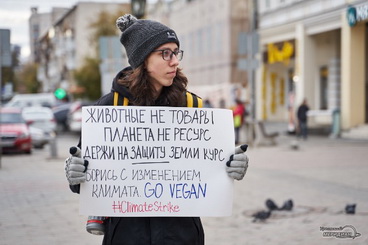 ЖИВОТНЫЕ НЕ ТОВАРЫ
ПЛАНЕТА НЕ РЕСУРС
ДЕРЖИ НА ЗАЩИТУ ЗЕМЛИ КУРС
БОРИСЬ С ИЗМЕНЕНИЕМ
КЛИМАТА GO VEGAN
#ClimateStrike